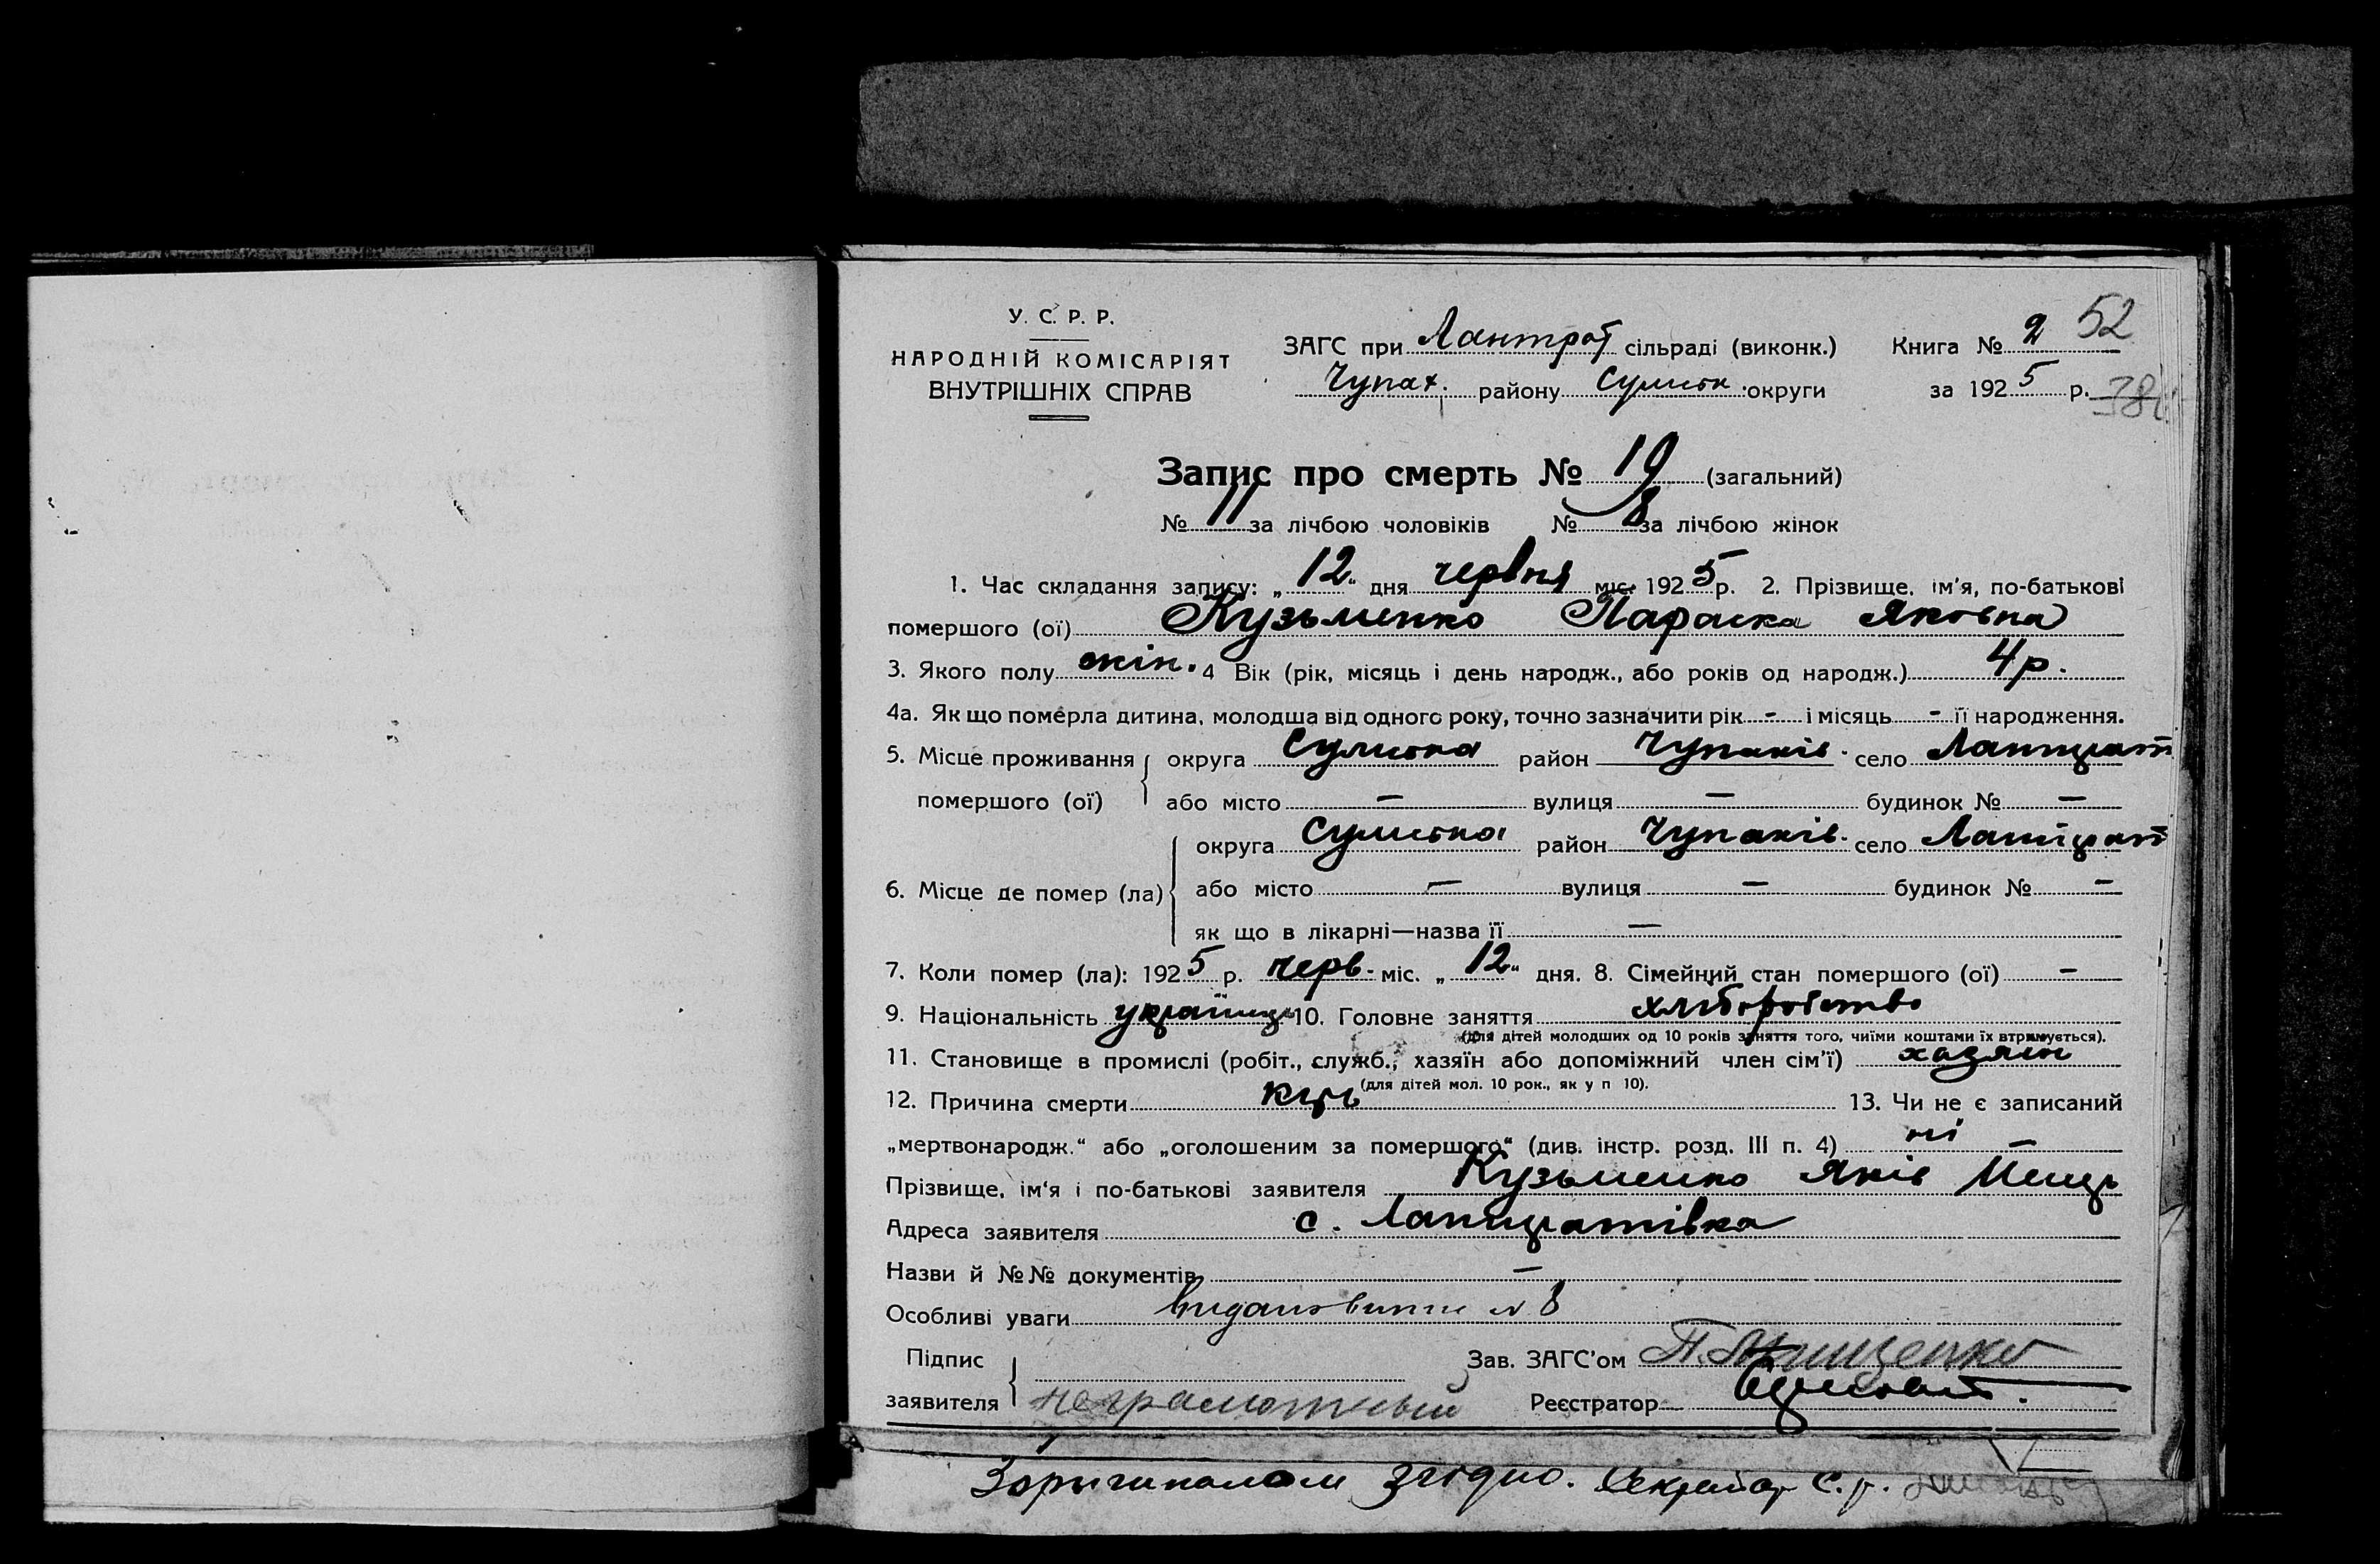 У. С. Р. Р.
НАРОДНІЙ КОМІСАРІЯТ
ВНУТРІШНІХ СПРАВ
ЗАГС при Лантрат сільраді (виконк.)
Чупах. району Сумськ. округи
Книга № 2 52
за 1925 р.
Запис про смерть № 19 (загальний)
№ 11 за лічбою чоловіків № 8 за лічбою жінок
1. Час складання запису: „12“ дня червня міс. 1925 р. 2. Прізвище, ім'я, по-батькові
помершого (ої) Кузьменко Параска Яковна
3. Якого полу жін. 4 Вік (рік, місяць і день народж., або років од народж.) 4 р.
4а. Як що померла дитина, молодша від одного року, точно зазначити рік - і місяць - її народження.
5. Місце проживання помершого (ої) округа Сумська район Чупахів. село Лантрат
або місто — вулиця — будинок № —
6. Місце де помер (ла) округа Сумська район Чупахів. село Лантрат
або місто — вулиця — будинок № —
як що в лікарні—назва її —
7. Коли помер (ла): 1925 р. черв. міс. „12“ дня. 8. Сімейний стан помершого (ої) —
9. Національність українц 10. Головне заняття хліборобство
(для дітей молодших од 10 років заняття того, чиїми коштами їх втримується).
11. Становище в промислі (робіт., служб., хазяїн або допоміжний член сім'ї) хазяин
(для дітей мол. 10 рок., як у п 10).
12. Причина смерти кір 13. Чи не є записаний
„мертвонародж.“ або „оголошеним за помершого“ (див. інстр. розд. III п. 4) ні —
Прізвище, ім'я і по-батькові заявителя Кузьменко Яків
Адреса заявителя с. Лантратівка
Назви й №№ документів —
Особливі уваги № 8
Підпис
заявителя неграмотный
Зав. ЗАГС'ом
Реєстратор
З оригиналом згідно. Секретар С. р.